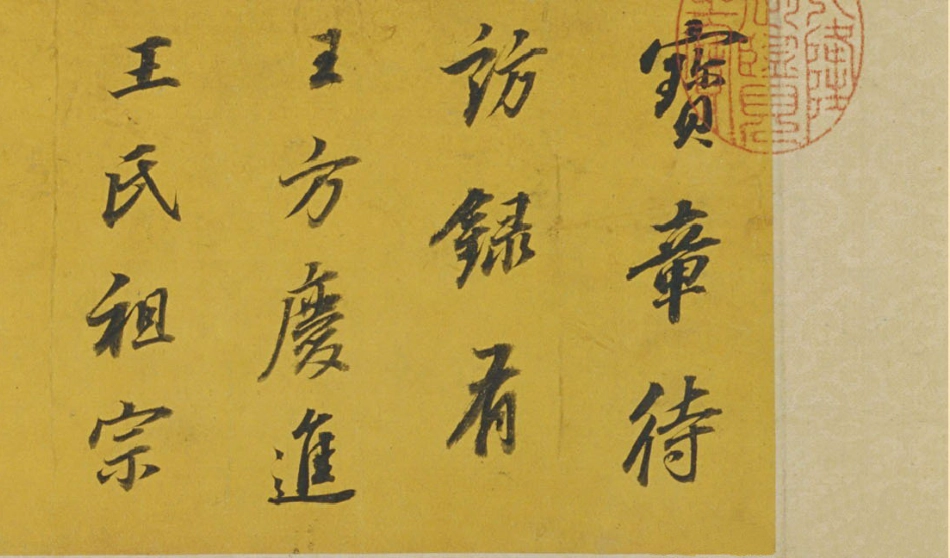 寶章待
訪録有
王方慶進
王氏祖宗